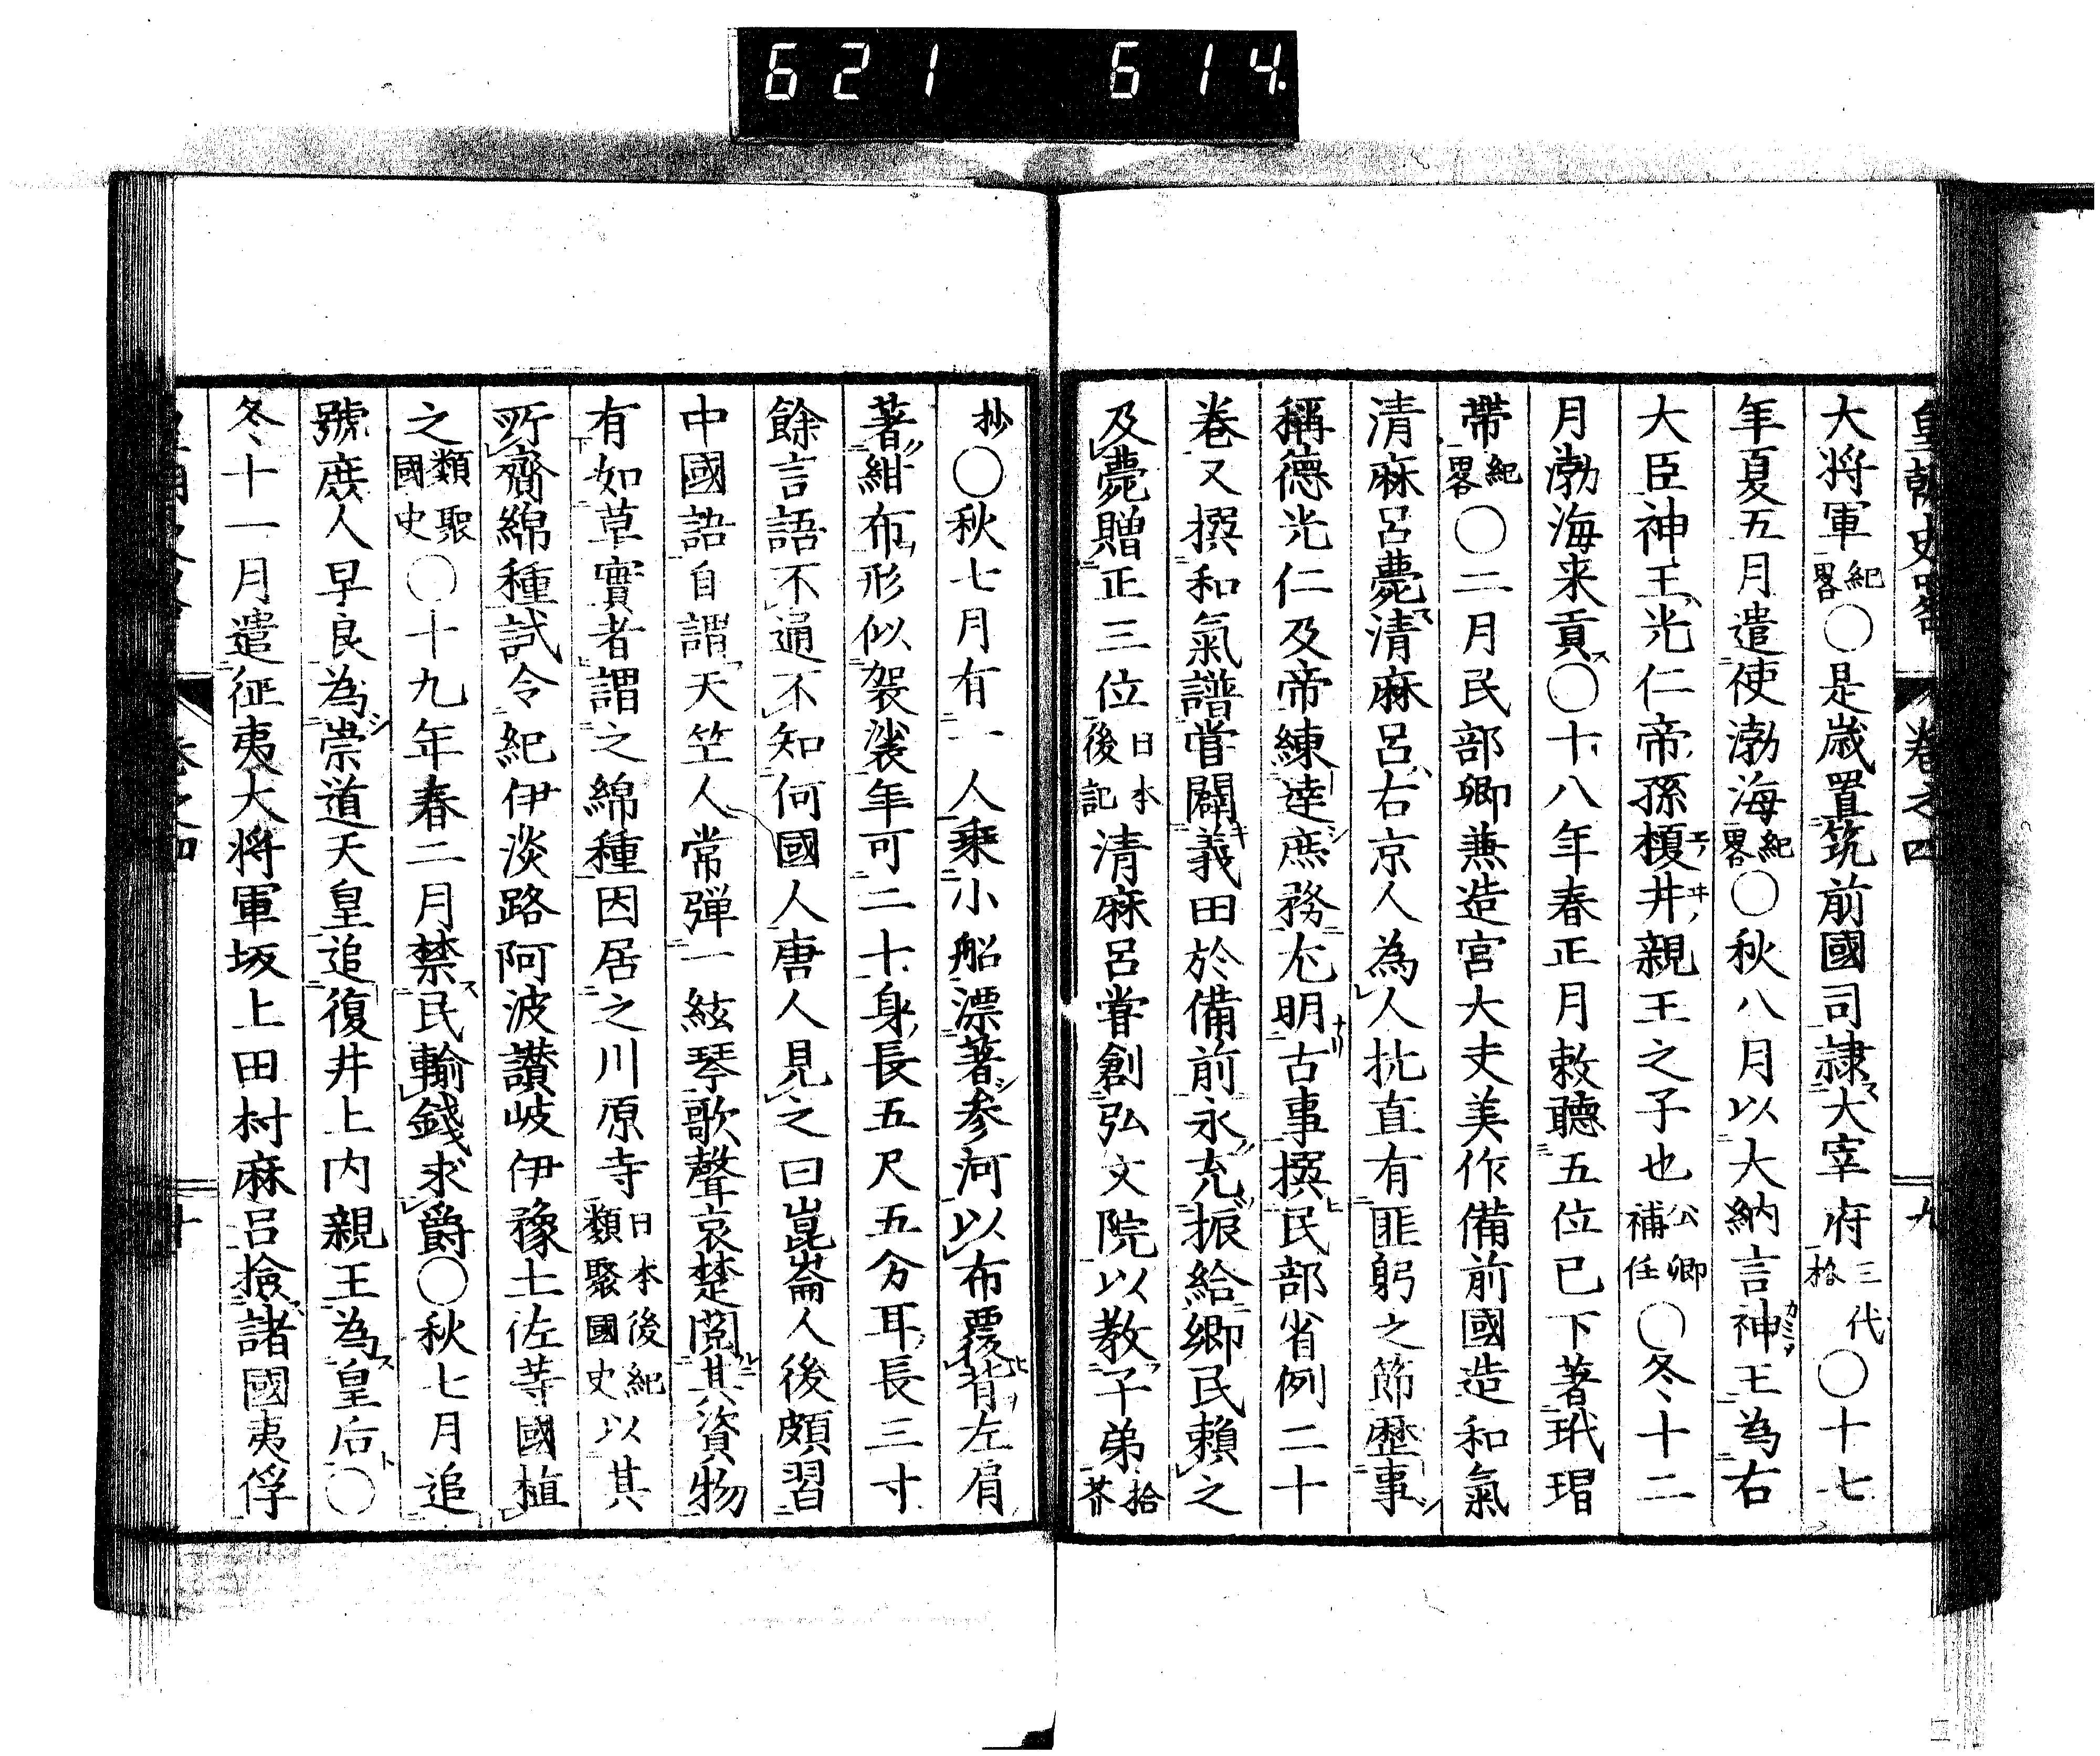 621 614.
皇朝史略 卷之四 九
大将軍紀畧〇是歳置筑前國司隷大宰府三代格〇十七
年夏五月遣使渤海紀畧〇秋八月以大納言神王為右
大臣神王光仁帝孫榎井親王之子也公卿補任〇冬十二
月渤海来貢〇十八年春正月敕聴五位已下著玳瑁
帶紀畧〇二月民部卿兼造宮大夫美作備前國造和氣
清麻呂薨清麻呂右京人為人抗直有匪躬之節歴事
稱德光仁及帝練達庶務尤明古事撰民部省例二十
巻又撰和氣譜嘗闢義田於備前永充振給郷民賴之
及薨贈正三位日本後記清麻呂嘗創弘文院以教子弟拾芥
抄〇秋七月有一人乗小船漂著参河以布覆背左肩
著紺布形似袈裟年可二十身長五尺五分耳長三寸
餘言語不通不知何國人唐人見之曰崑崙人後頗習
中國語自謂天竺人常彈一絃琴歌聲哀楚閲其資物
有如草實者謂之綿種因居之川原寺日本後紀類聚國史以其
所齎綿種試令紀伊淡路阿波讃岐伊豫土佐等國植
之類聚國史〇十九年春二月禁民輸錢求爵〇秋七月追
號廃人早良為崇道天皇追復井上内親王為皇后〇
冬十一月遣征夷大将軍坂上田村麻呂撿諸國夷俘
卷之四 十